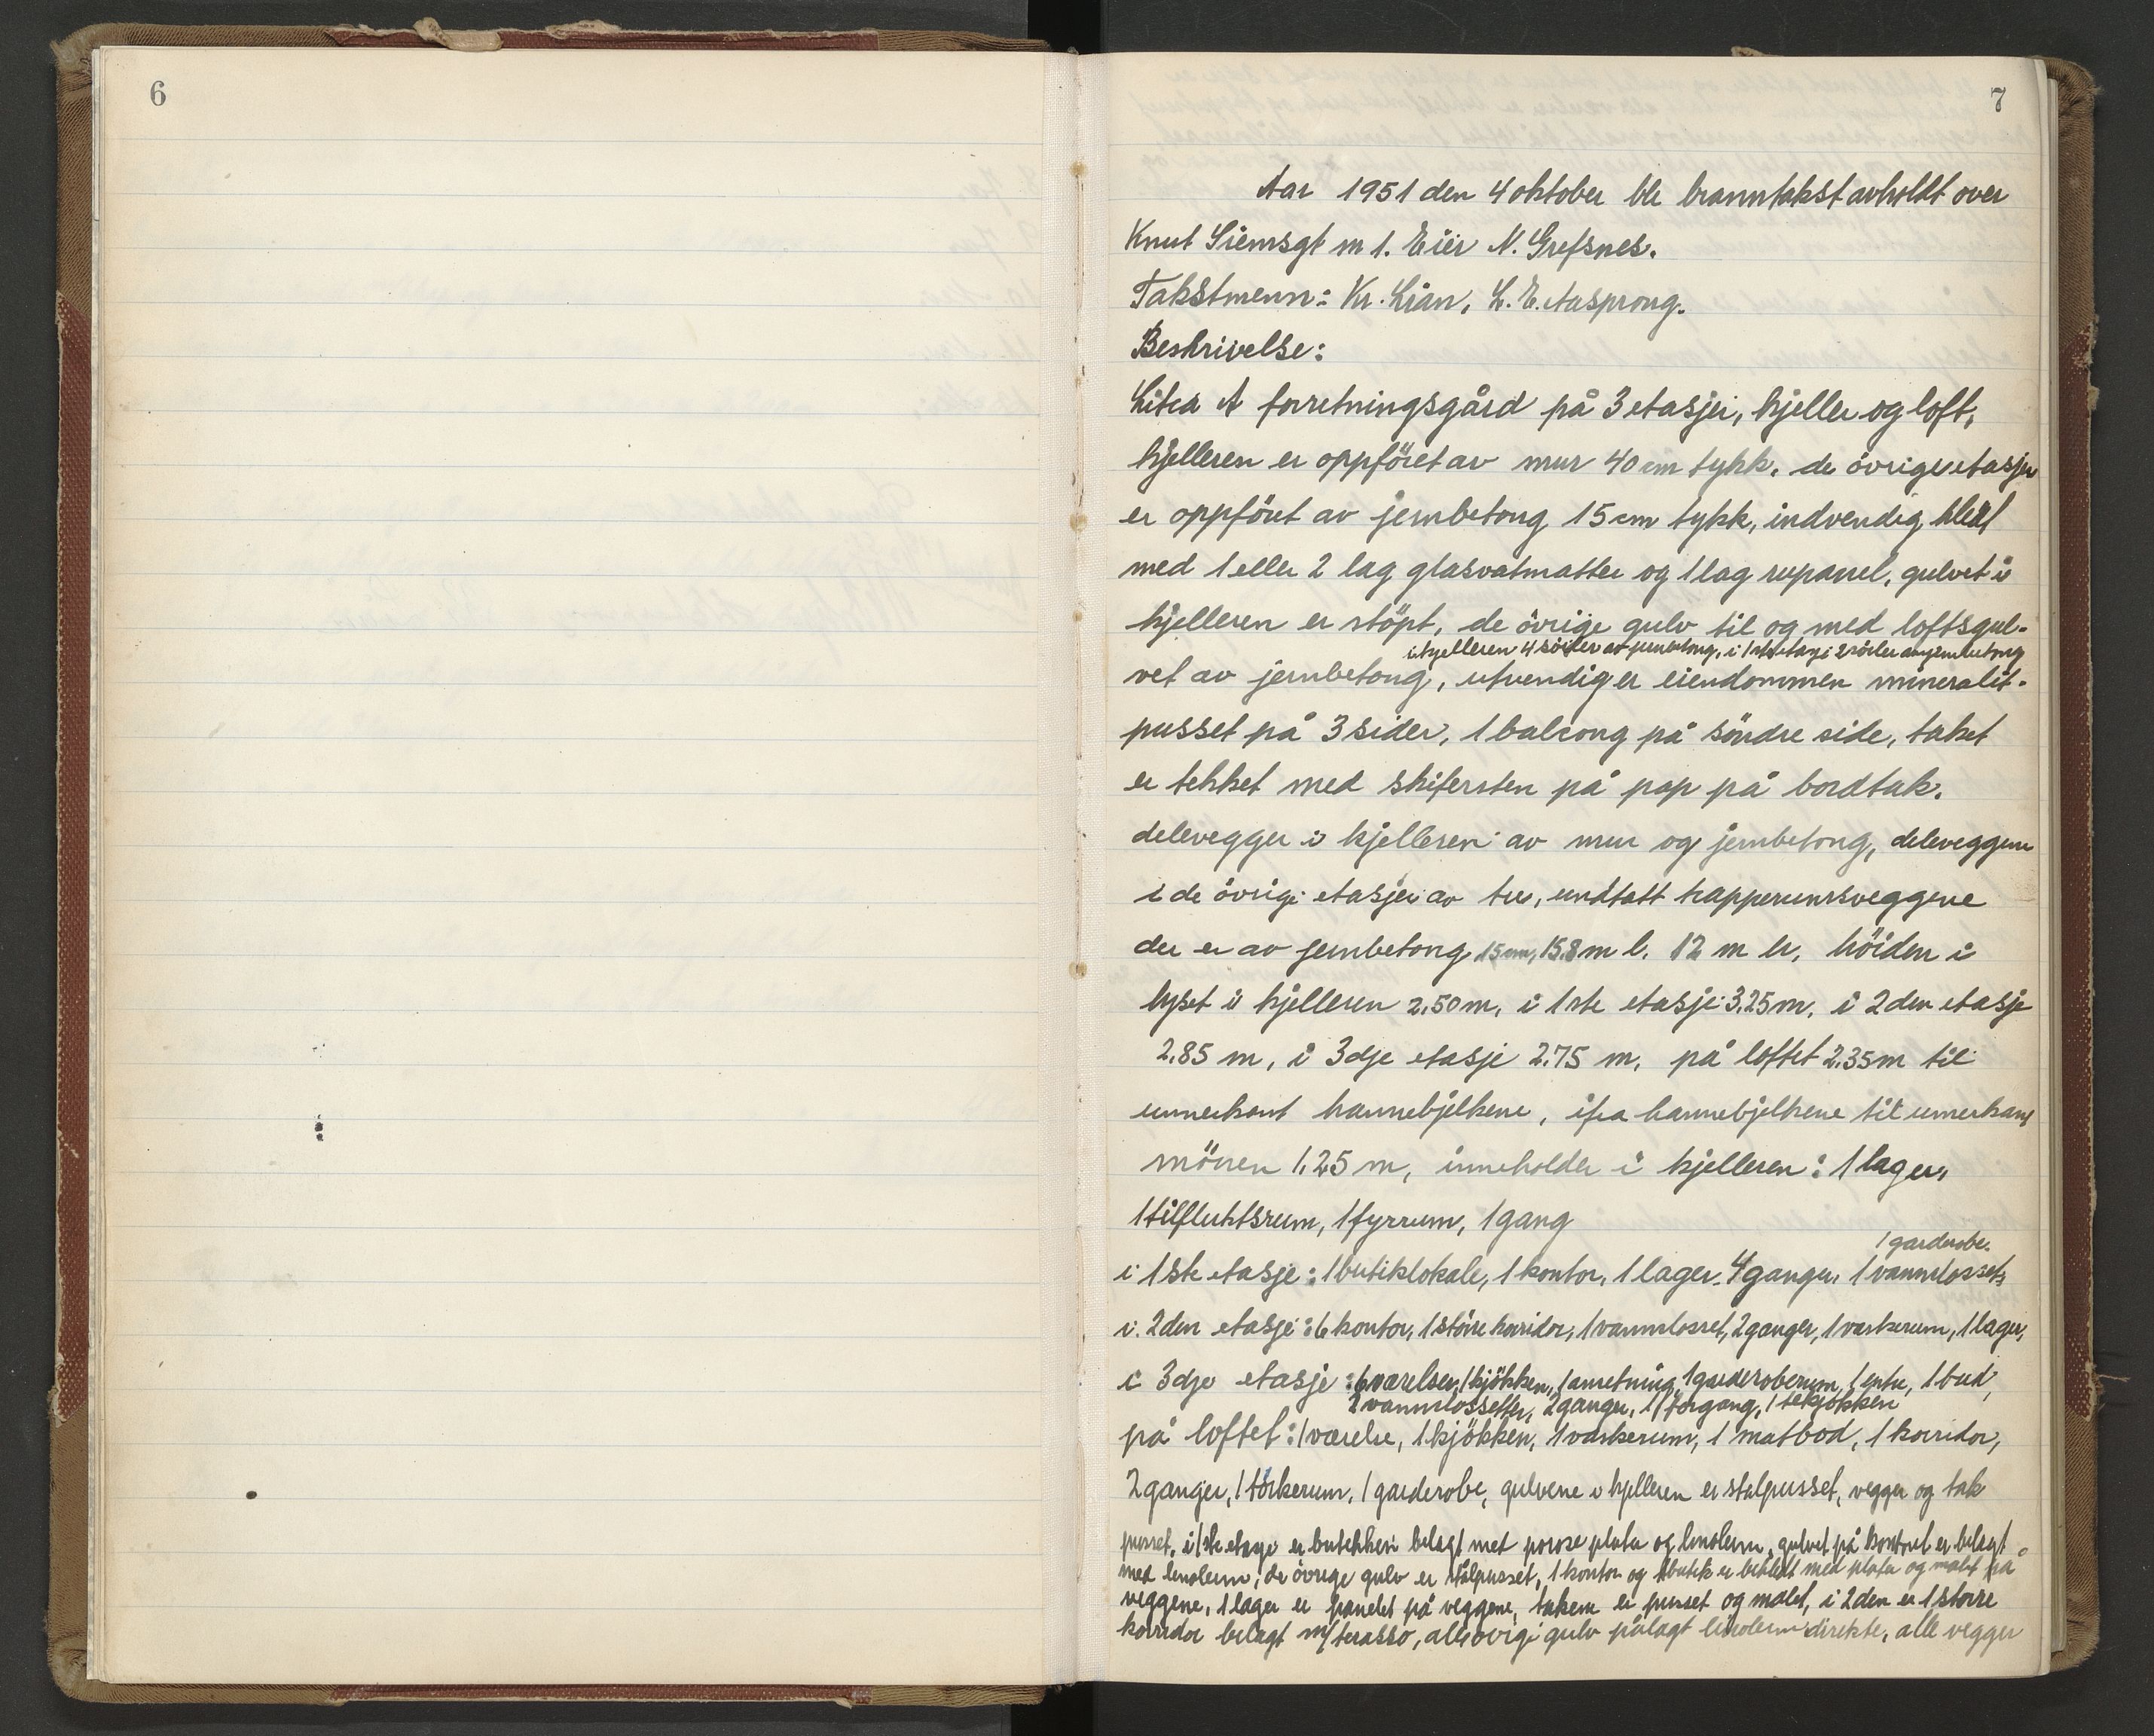 6
7
Aar 1951 den 4 oktober ble branntakst avholdt over
Knut Liemsgt m 1. Eier N. Grefsnes.
Takstmenn: Kr. Lian, L. E. Aasprong.
Beskrivelse:
Litra A forretningsgård på 3 etasjer, kjeller og loft,
kjelleren er oppföret av mur 40 cm tykk. de övrige etasjer
er oppfört av jernbetong 15 cm tykk, indvendig kledt
med 1 eller 2 lag glasvatmatter og 1 lag rupanel, gulvet i
kjelleren er stöpt, de övrige gulv til og med loftsgul-
i kjelleren 4 söiler av jernbetong, i 1ste etasje 2 söiler av jernbetong
vet av jernbetong, utvendig er eiendommen mineralit-
pusset på 3 sider, 1 balcong på söndre side, taket
er tekket med skifersten på pap på bordtak.
delevegger i kjelleren av mur og jernbetong, deleveggene
i de övrige etasjer av tre, undtatt trapperumsveggene
der er av jernbetong 15 cm, 15.8 m l. 12 m br, höiden i
lyset i kjelleren 2.50 m, i 1ste etasje 3.25 m, i 2den etasje
2.85 m, i 3dje etasje 2.75 m, på loftet 2.35 m til
unnerkant hannebjelkene, ifra hannebjelkene til unnerkant
mönen 1,25 m, inneholder i kjelleren: 1 lager,
1 tilfluktsrum, 1 fyrrum, 1 gang
1 garderobe.
i 1ste etasje: 1 butiklokale, 1 kontor, 1 lager, 4 ganger, 1 vannclossets
i 2den etasje: 6 kontor, 1 störe korridor, 1 vannclosset, 2 ganger, 1 vaskerum, 1 lager,
i 3dje etasje: 6 værelser, 1 kjökken, 1 anretning, 1 garderoberum, 1 entre, 1 bad,
2 vannclossetter, 2 ganger, 1 forgang, 1 tekjökken
på loftet: 1 værelse, 1 kjökken, 1 vaskerum, 1 matbod, 1 korridor,
2 ganger, 1 törkerum, 1 garderobe, gulvene i kjelleren er stalpusset, vegger og tak
pusset, i 1ste etasje er butikken belagt met porøse plater og linoleum, gulvet på kontoret er belagt
med linoleum, de övrige gulv er stålpusset, 1 kontor og 1 butik er bekledt med plater og malet på
veggene, 1 lager er panelet på veggene, takene er pusset og malet, i 2den er 1 störe
korridor belagt m/terasso, alle övrige gulv pålagt linoleum direkte, alle vegger